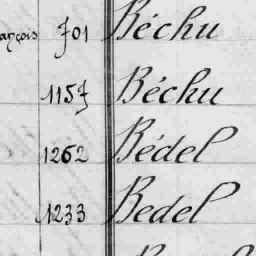 ançois 701 Béchu
1157 Béchu
1262 Bédel
1233 Bedel